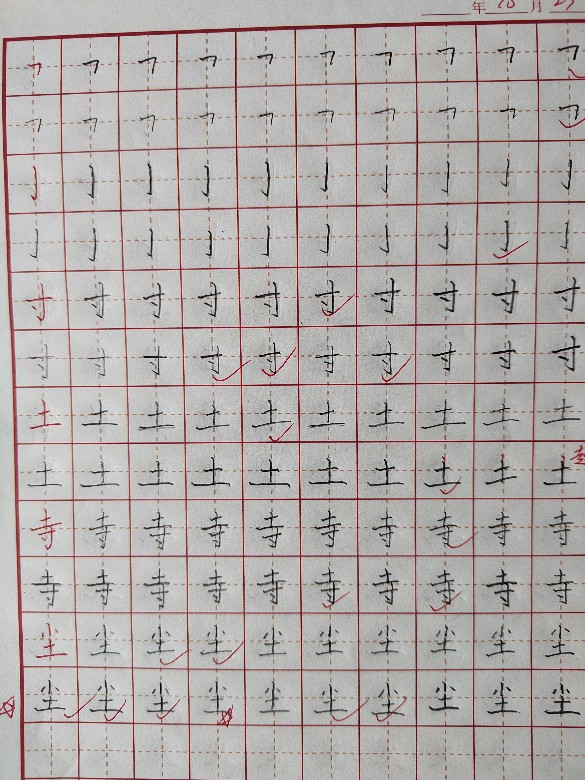 年 10 月
㇕ ㇕ ㇕ ㇕ ㇕ ㇕ ㇕ ㇕ ㇕ ㇕
㇕ ㇕ ㇕ ㇕ ㇕ ㇕ ㇕ ㇕ ㇕ ㇕
亅 亅 亅 亅 亅 亅 亅 亅 亅 亅
亅 亅 亅 亅 亅 亅 亅 亅 亅 亅
寸 寸 寸 寸 寸 寸 寸 寸 寸 寸
寸 寸 寸 寸 寸 寸 寸 寸 寸 寸
土 土 土 土 土 土 土 土 土 土
土 土 土 土 土 土 土 土 土 土
寺 寺 寺 寺 寺 寺 寺 寺 寺 寺
寺 寺 寺 寺 寺 寺 寺 寺 寺 寺
尘 尘 尘 尘 尘 尘 尘 尘 尘 尘
尘 尘 尘 尘 尘 尘 尘 尘 尘 尘